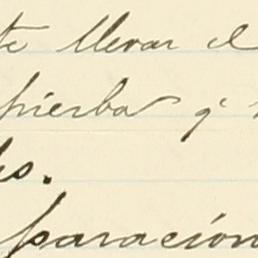 te llevar el
pierba y
os.
paración